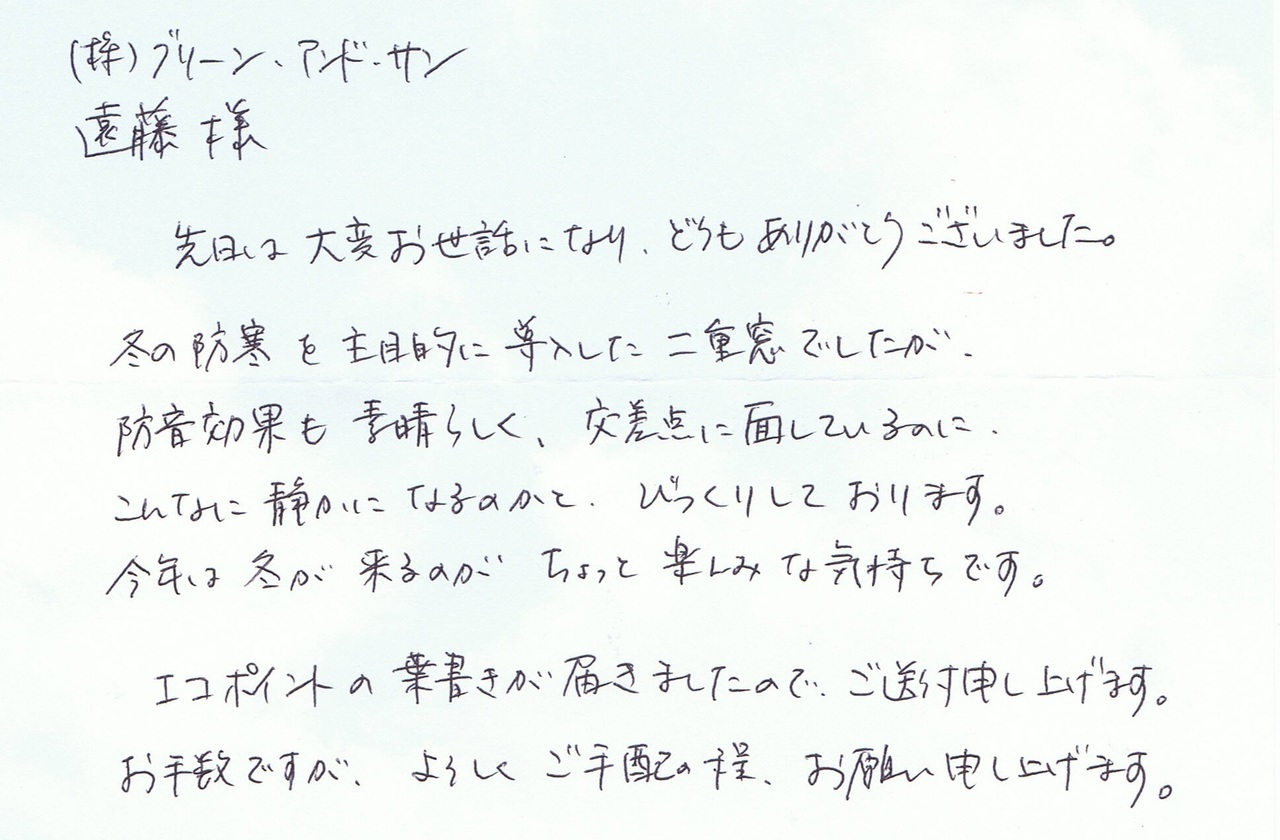 (株)グリーン・アンド・サン
遠藤様
先日は大変お世話になり、どうもありがとうございました。
冬の防寒を主目的に導入した二重窓でしたが、
防音効果も素晴らしく、交差点に面しているのに、
こんなに静かになるのかと、びっくりしております。
今年は冬が来るのがちょっと楽しみな気持ちです。
エコポイントの葉書きが届きましたので、ご送付申し上げます。
お手数ですが、よろしくご手配の程、お願い申し上げます。